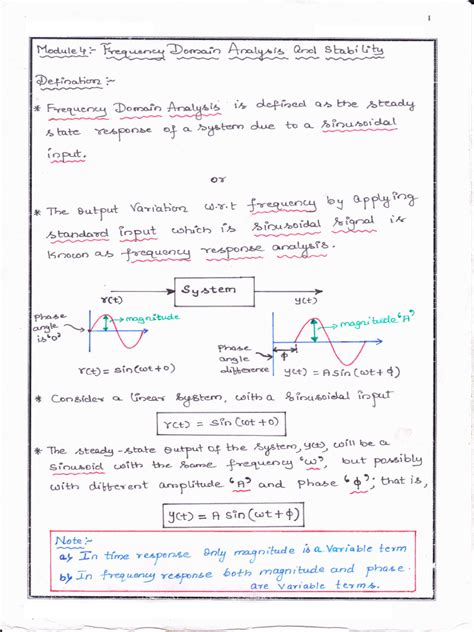 1
Module 4:- Frequency Domain Analysis and Stability
Defination:-
* Frequency Domain Analysis is defined as the steady
state response of a system due to a sinusoidal
input.
or
* The output Variation w.r.t frequency by applying
standard input which is sinusoidal signal is
known as frequency response analysis.
System
r(t)
y(t)
Phase
angle
is "0"
magnitude
magnitude "A"
Phase
angle
difference
ϕ
r(t) = sin(ωt+0)
y(t) = A sin(ωt+ϕ)
* Consider a linear system, with a sinusoidal input
r(t) = sin(ωt+0)
* The steady-state output of the system, y(t), will be a
sinusoid with the same frequency "ω", but possibly
with different amplitude "A" and phase "ϕ"; that is,
y(t) = A sin(ωt+ϕ)
Note:-
a) In time response only magnitude is a variable term
b) In frequency response both magnitude and phase
are variable terms.